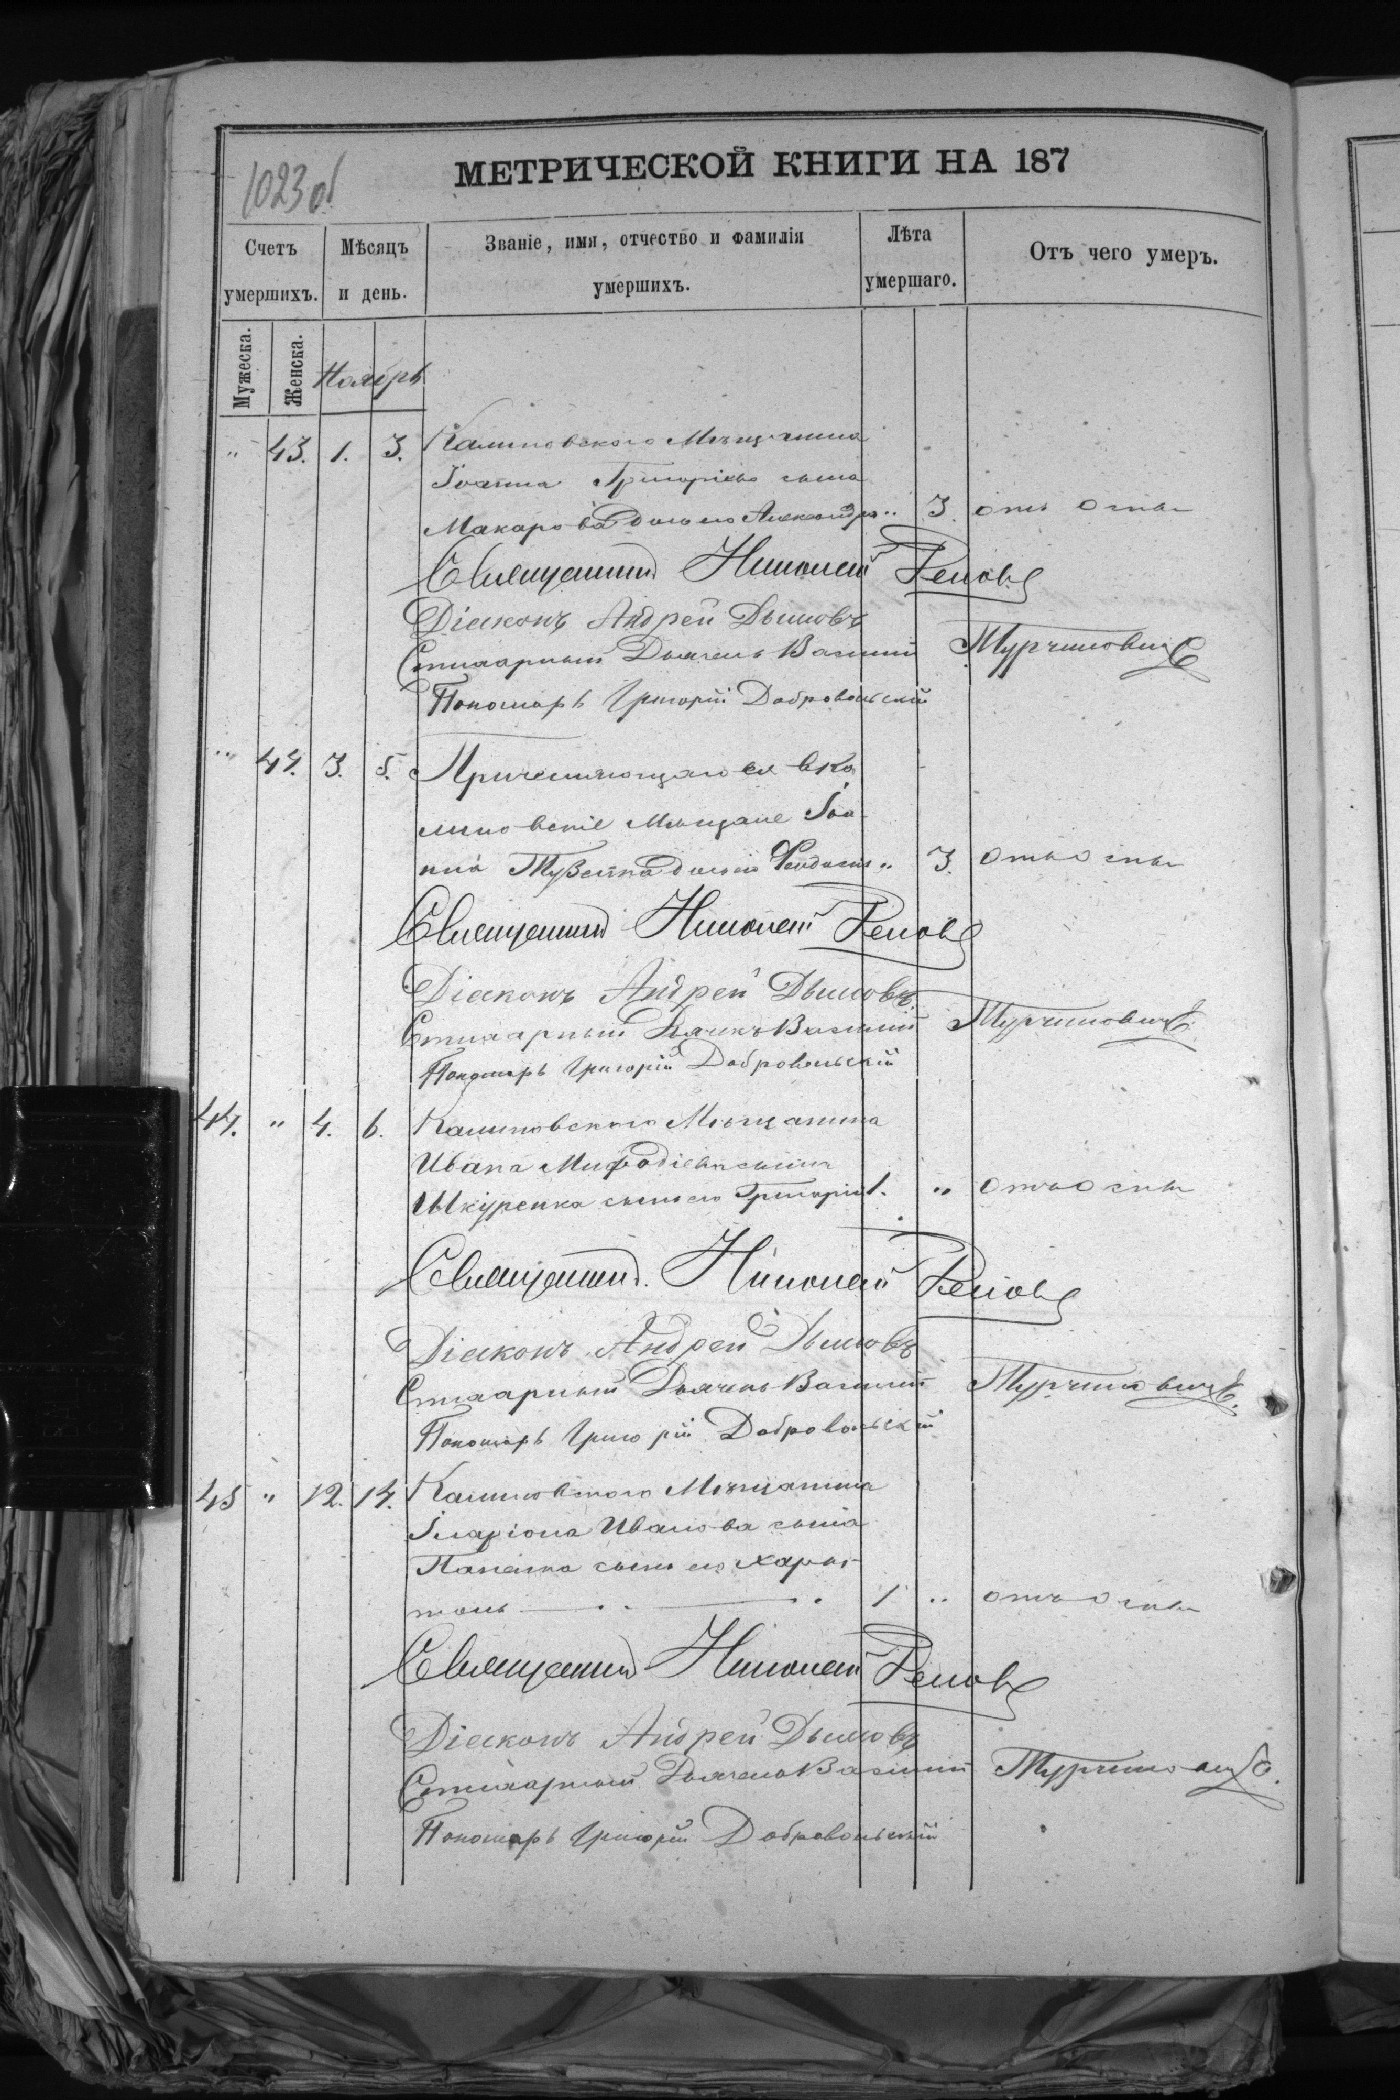 1023 об
МЕТРИЧЕСКОЙ КНИГИ НА 187
Счетъ умершихъ.
Мѣсяцъ и день.
Званіе, имя, отчество и фамилія умершихъ.
Лѣта умершаго.
Отъ чего умеръ.
Мужеска.
Женска.
Ноябрь
" 43. 1. 3. Калиновского Мѣщанина
Іоанна Григоріева сына
Макарова дочь его Александра " 3. отъ оспы
Священникъ Николай
Діаконъ Андрей Дымовъ
Стихарный Дьячекъ Василий Турчиновичъ
Пономарь Григорій Добровольскій
" 44. 3. 5. Причисляющагося в Ка
линовскіе Мѣщане Іоа
дочь Феодосія " 3. отъ оспы
Священникъ Николай
Діаконъ Андрей Дымовъ.
Стихарный Дьячекъ Василий Турчиновичъ
Пономарь Григорій Добровольскій
44. " 4. 6. Калиновского Мѣщанина
Ивана Мифодіева сына
Шкуренка сынъ его Григорій 1. " отъ оспы
Священникъ. Николай
Діаконъ Андрей Дымовъ
Стихарный Дьячекъ Василий Турчиновичъ.
Пономарь Григорій Добровольскій
45 " 12. 14. Калиновского Мѣщанина
Іларіона Иванова сына
сынъ его Хари
тонъ 1 " отъ оспы
Священникъ Николай
Діаконъ Андрей Дымовъ
Стихарный Дьячекъ Василий Турчиновичъ.
Пономарь Григорій Добровольскій